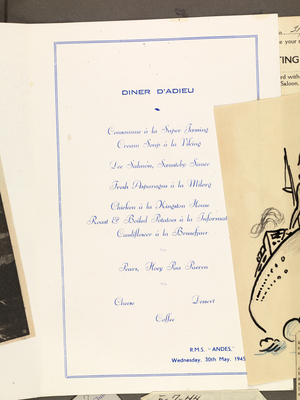 DINER D'ADIEU
Consomme à la Super Tanning
Cream Soup à la Viking
Lee Salmon, Sauce
Fresh Asparagus à la Milorg
Chicken à la Kingston House
Roast & Boiled Potatoes à la Informat
Cauliflower à la
Pears, Hoey Paa Pæren
Cheese Dessert
Coffee
R.M.S. "ANDES."
Wednesday, 30th May, 1945
e your
TING
rd with
Saloon.